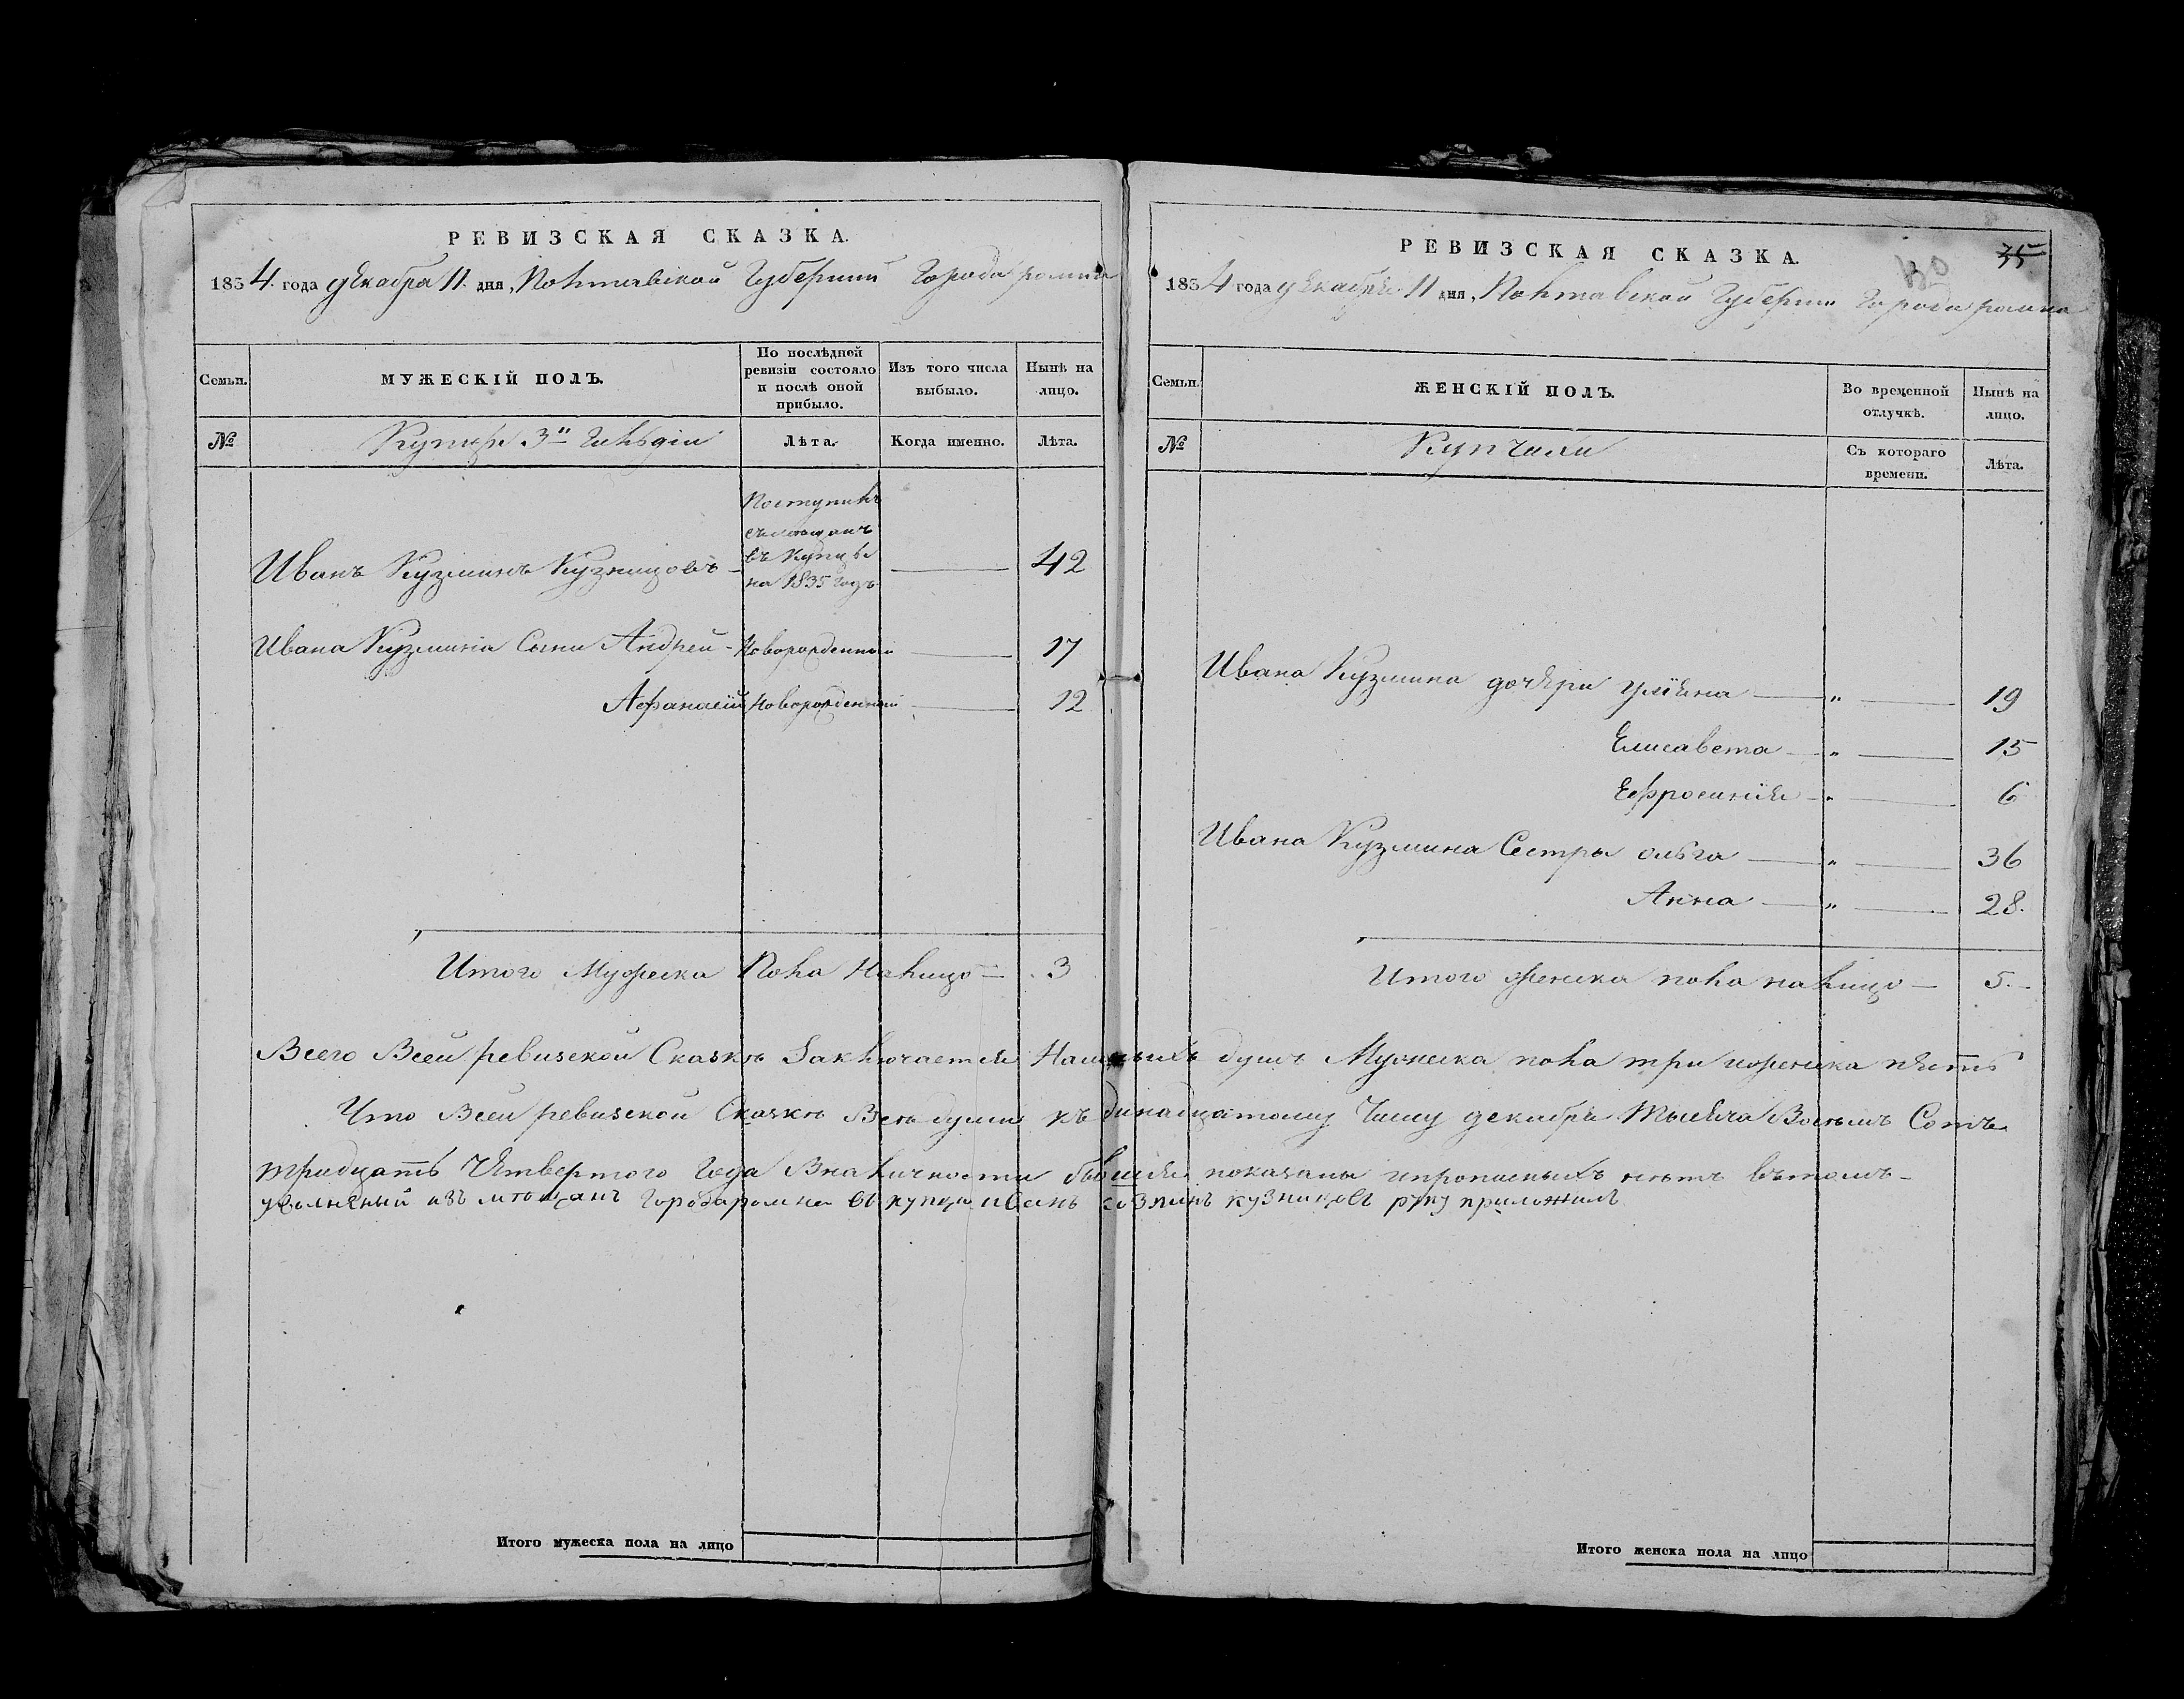 РЕВИЗСКАЯ СКАЗКА.
1834. года декабря 11. дня, Полтавской Губернии Города ромна
Семьи.
МУЖЕСКІЙ ПОЛЪ.
По послѣдней
ревизіи состояло
и послѣ оной
прибыло.
Изъ того числа
выбыло.
Нынѣ на
лицо.
№
Купцы 3й Гильдіи
Лѣта.
Когда именно.
Лѣта.
Поступилъ
съ мѣщанъ
въ купцы
на 1835 годъ
Иванъ Кузминъ Кузницовъ - 42
Ивана Кузмина Сыни Андрей - Новорожденный 17
Афанасий Новорожденный 12
Итого Мужеска Пола Налицо - 3
РЕВИЗСКАЯ СКАЗКА.
35
130
1834 года декабря 11 дня, Полтавской Губернии Города ромна
Семьи.
ЖЕНСКІЙ ПОЛЪ.
Во временной
отлучкѣ.
Нынѣ на
лицо.
№
Купчихи
Съ котораго
времени.
Лѣта.
Ивана Кузмина дочери улияна — „ — 19
Елисавета — „ — 15
Ефросиния — „ — 6
Ивана Кузмина Сестры ольга — „ — 36
Анна — „ — 28.
Итого женска пола налицо — 5.-
Всего Всей ревизской Сказкѣ Заключается Наличныхъ душъ Мужеска пола три иженска пять
Что Всей ревизской Сказкѣ Всѣ души къ динадцатому Числу декабря тысяча Восѣмъ Сотъ
тридцать Четвертого Года Вналичности бывшия показаны ипрописныхъ нѣтъ вътомъ-
уволнѣный изъ мѣщанъ Города ромна въ купци иванъ козминъ кузницовъ руку приложилъ
Итого мужеска пола на лицо
Итого женска пола на лицо